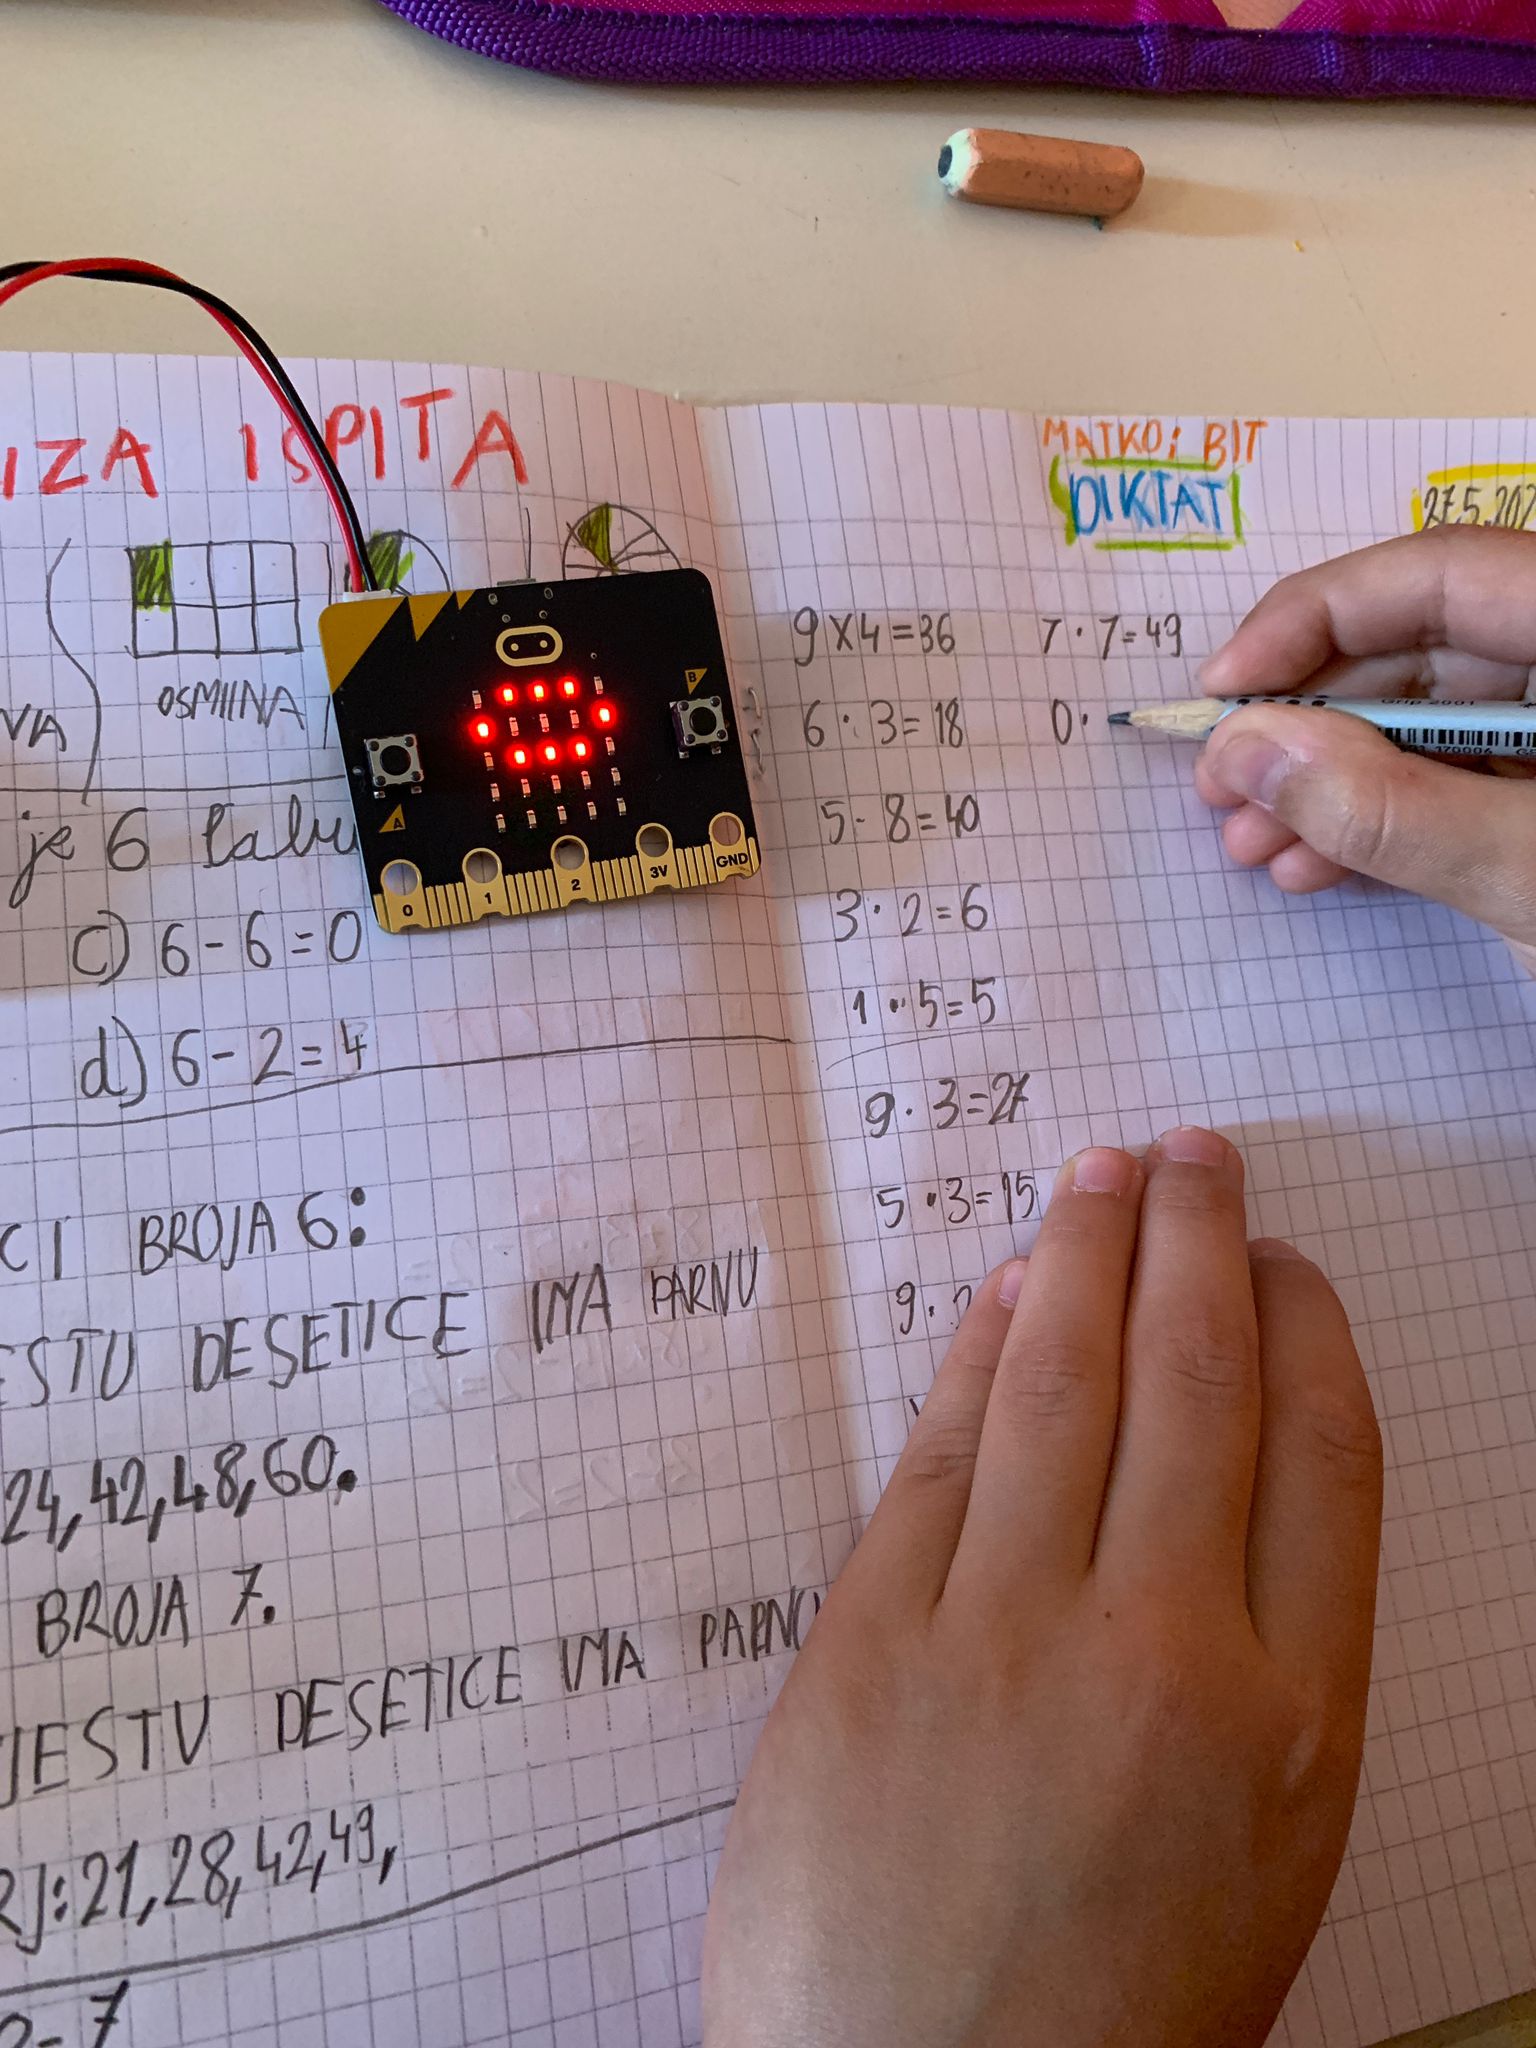 IZA ISPITA
OSMIINA
je 6
c) 6 - 6 = 0
d) 6 - 2 = 4
BROJA 6:
DESETICE IMA PARNU
24, 42, 48, 60.
BROJA 7.
JESTU DESETICE IMA PARNU
RJ: 21, 28, 42, 49,
- 7
A
B
0 1 2 3V GND
MATKO i BIT
DIKTAT
27.5.202
9 X 4 = 36
6 : 3 = 18
5 - 8 = 40
3 · 2 = 6
1 · 5 = 5
9 · 3 = 27
5 · 3 = 15
9 ·
7 · 7 = 49
0 ·
Grip 2001